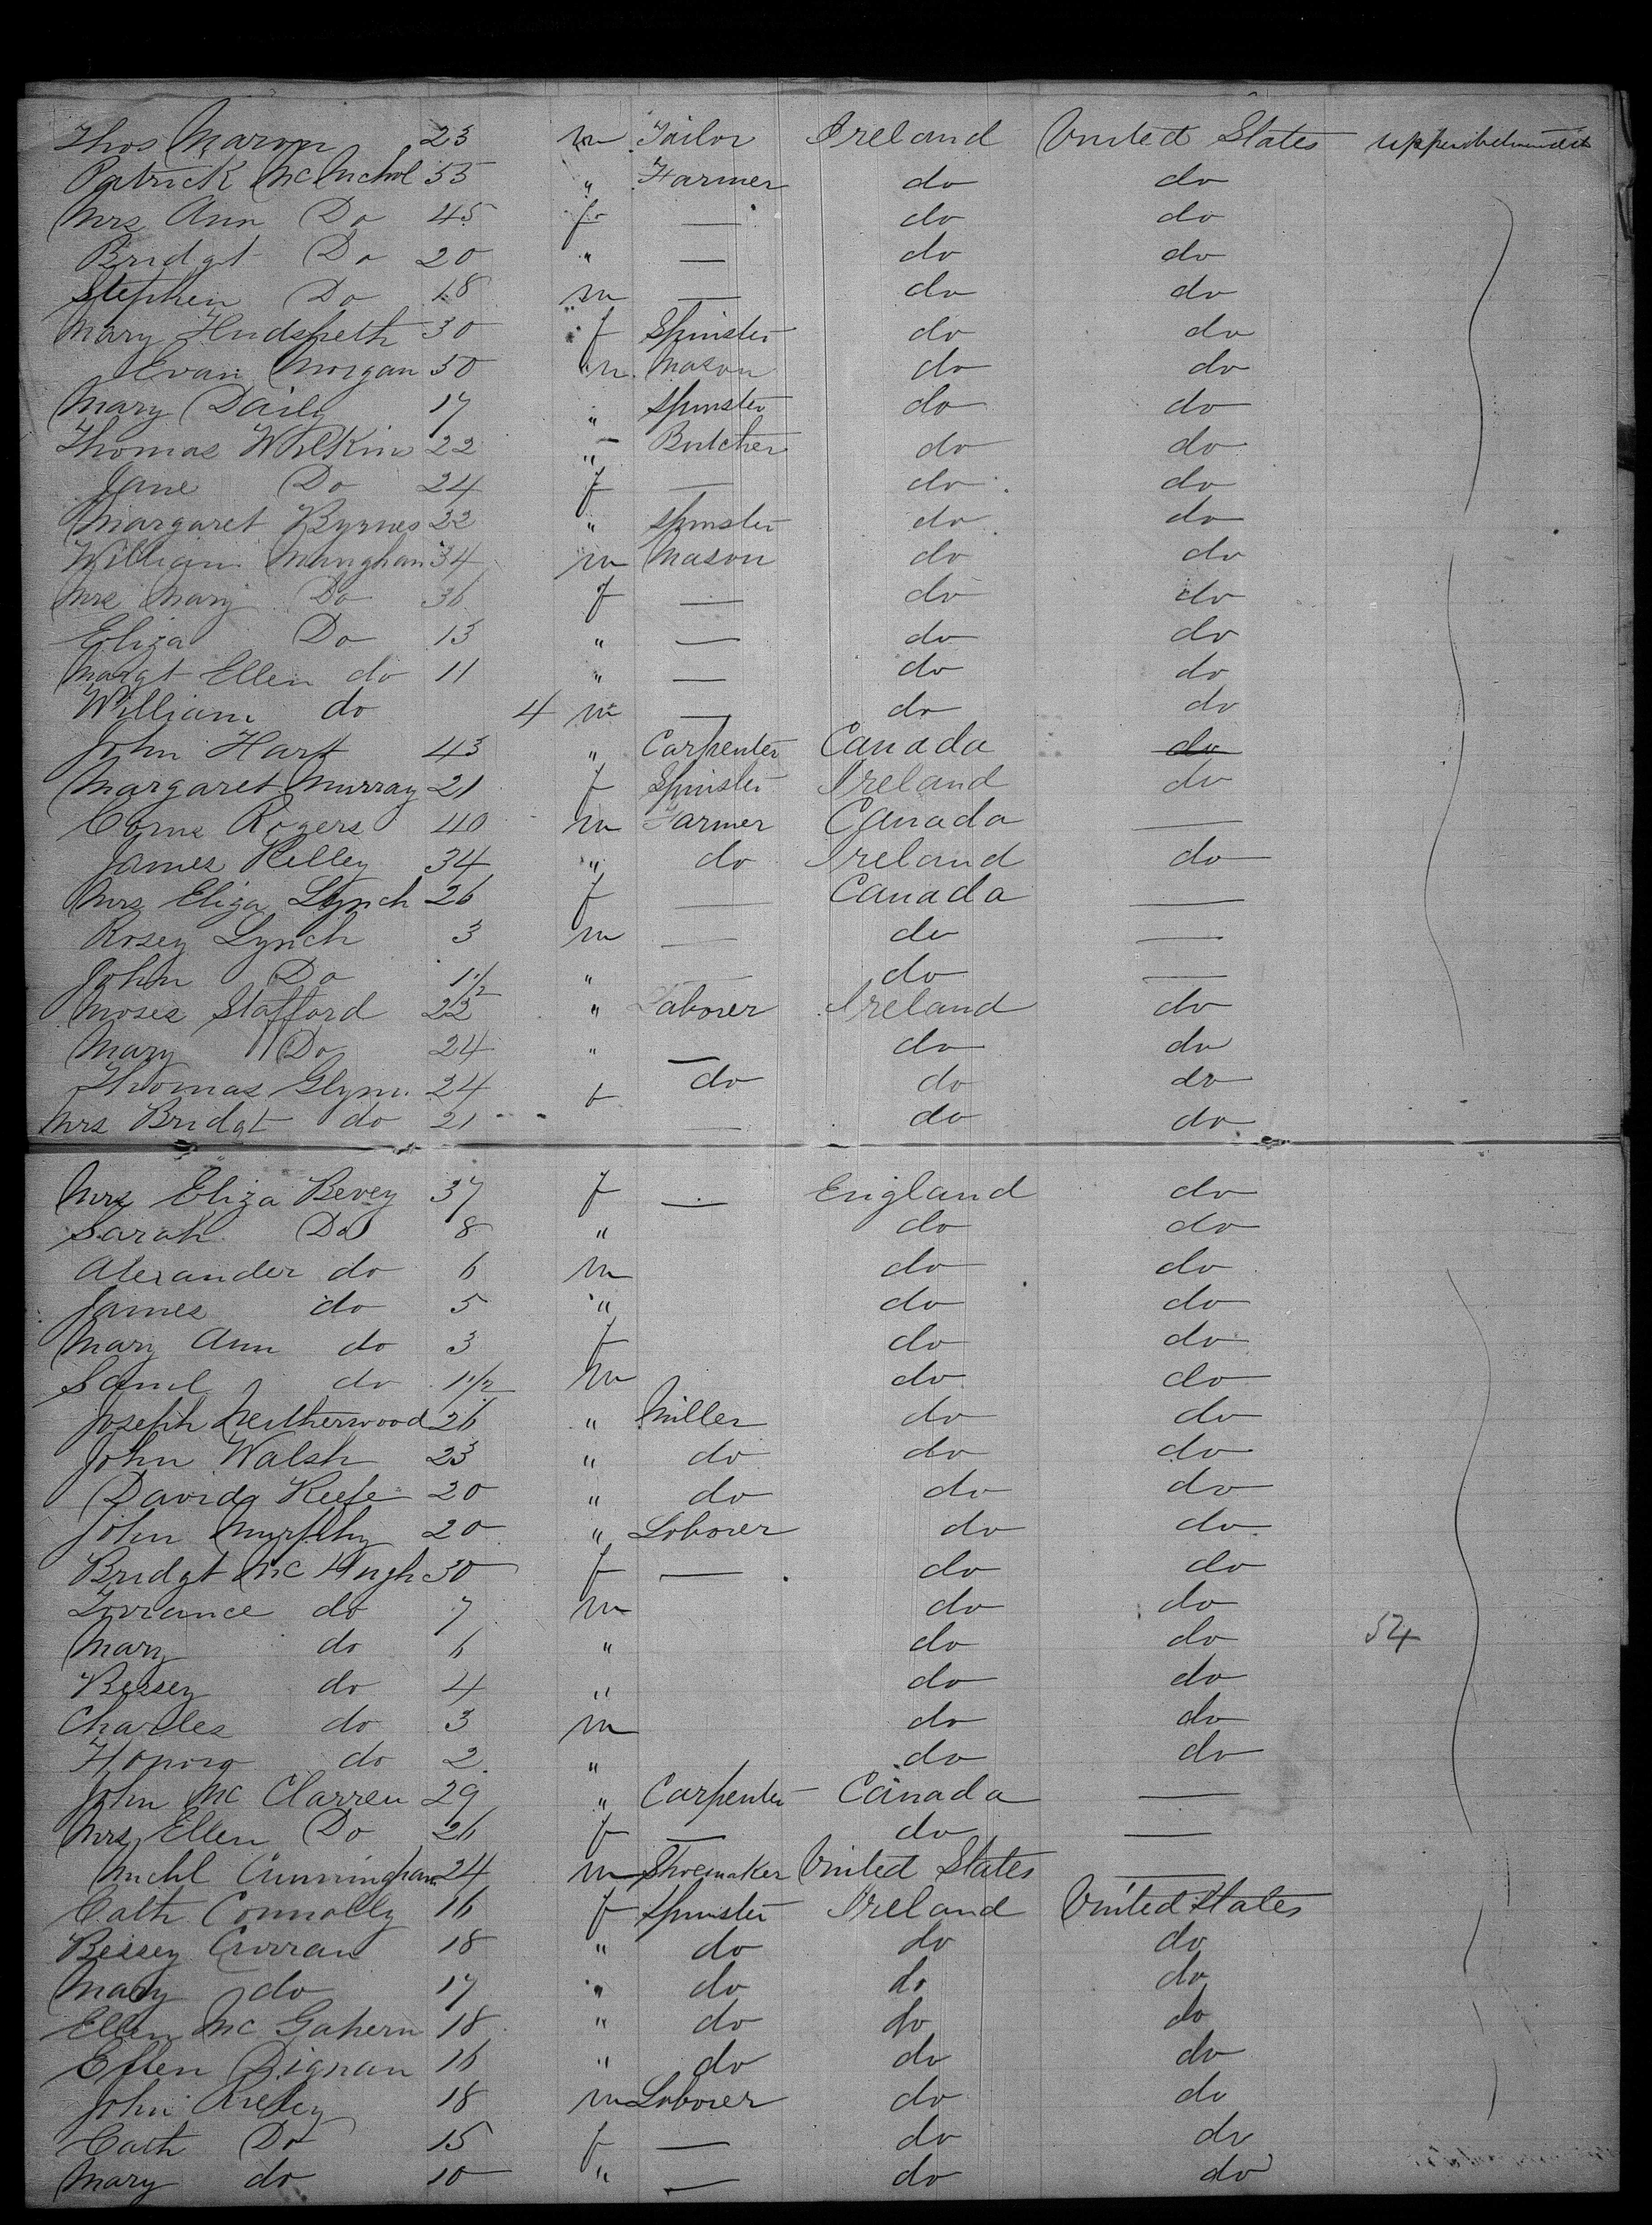 Thos Maron 23 m Tailor Ireland United States
Patrick McNichol 55 " Farmer do do
Mrs Ann Do 45 f — do do
Bridgt Do 20 " — do do
Stephen Do 18 m — do do
Mary Hudspeth 30 f Spinster do do
Evan Morgan 50 m Mason do do
Mary Daily 17 " Spinster do do
Thomas Wilkins 22 " Butcher do do
Jane Do 24 f — do do
Margaret Byrnes 22 " Spinster do do
William Manghan 34 m Mason do do
Mrs Mary Do 36 f — do do
Eliza Do 13 " — do do
Margt Ellen do 11 " — do do
William do 4 m — do do
John Hart 43 " Carpenter Canada do
Margaret Murray 21 f Spinster Ireland do
Rogers 40 m Farmer Canada —
James Kelley 34 " do Ireland do
Mrs Eliza Lynch 26 f — Canada —
Rosey Lynch 3 m — do —
John Do 1 1/2 " — do —
Moses Stafford 22 " Laborer Ireland do
Mary Do 24 " — do do
Thomas Glynn 24 f do do do
Mrs Bridgt do 21 — do do
Mrs Eliza Bevey 37 f — England do
Sarah Do 8 " do do
Alexander do 6 m do do
James do 5 " do do
Mary Ann do 3 f do do
Saml do 1 1/2 m do do
Joseph Neitherwood 26 " Miller do do
John Walsh 23 " do do do
David Keefe 20 " do do do
John Murphy 20 " Loborer do do
Bridgt Mc Hugh 30 f — do do
Torrance do 7 m do do
Mary do 6 " do do 54
Bessey do 4 " do do
Charles do 3 m do do
Honora do 2 " do do
John Mc Clarren 29 " Carpenter Canada —
Mrs Ellen Do 26 f — do —
Michl Cunningham 24 m Shoemaker United States —
Cath Connolly 16 f Spinster Ireland United States
Bessey Curran 18 " do do do
Mary do 17 " do do do
Ellen Mc Gahern 18 " do do do
Ellen Dignan 16 " do do do
John 18 m Loborer do do
Cath Do 15 f — do do
Mary do 10 " — do do